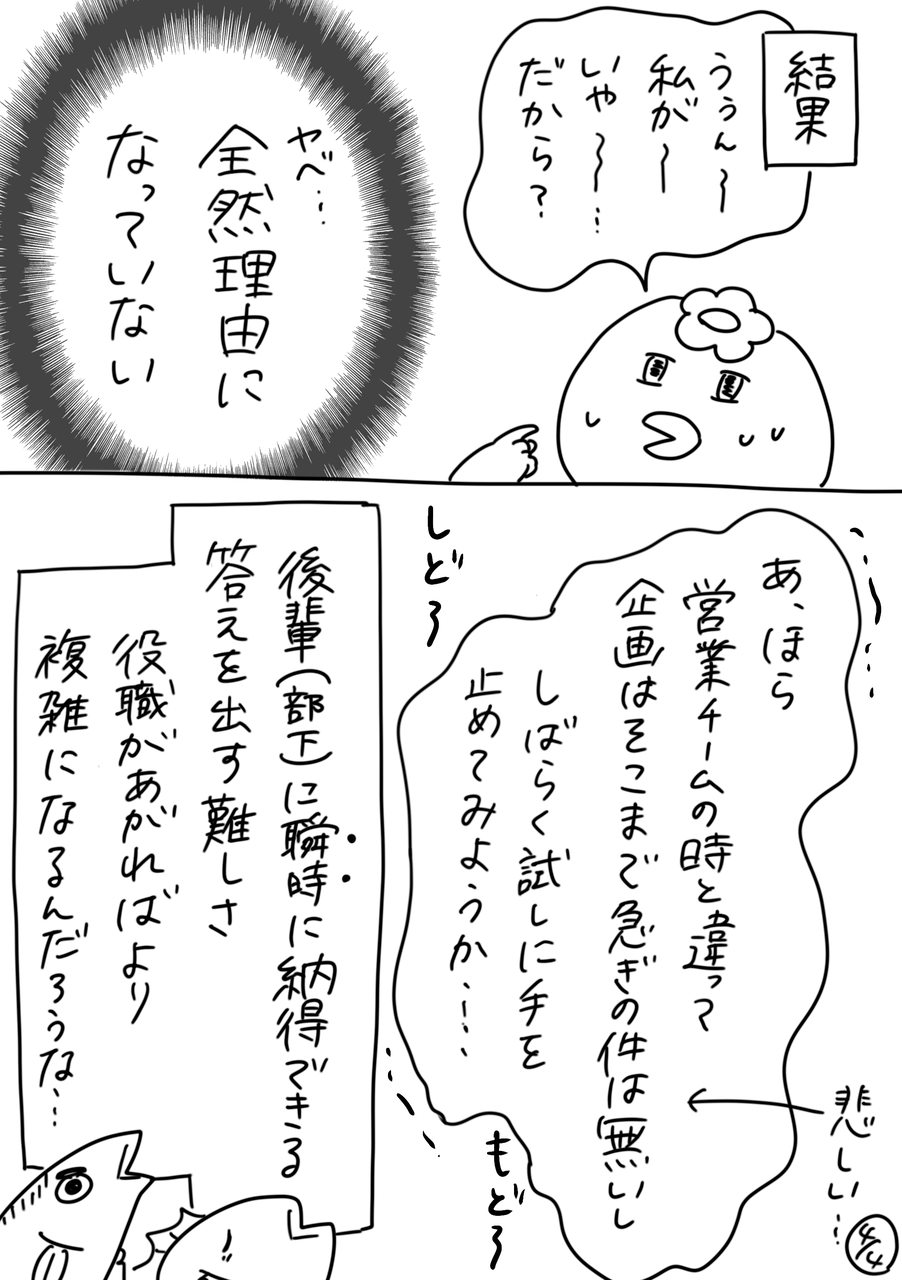 結果
うぅん〜
私が〜
いや〜〜…
だから？
ヤベ…
全然理由に
なっていない
あ、ほら
営業チームの時と違って
企画はそこまで急ぎの件は無いし
しばらく試しに手を
止めてみようか……
悲しい…
しど〜
もど〜
後輩(部下)に瞬時に納得できる
答えを出す難しさ
役職があがればより
複雑になるんだろうな…
4/4